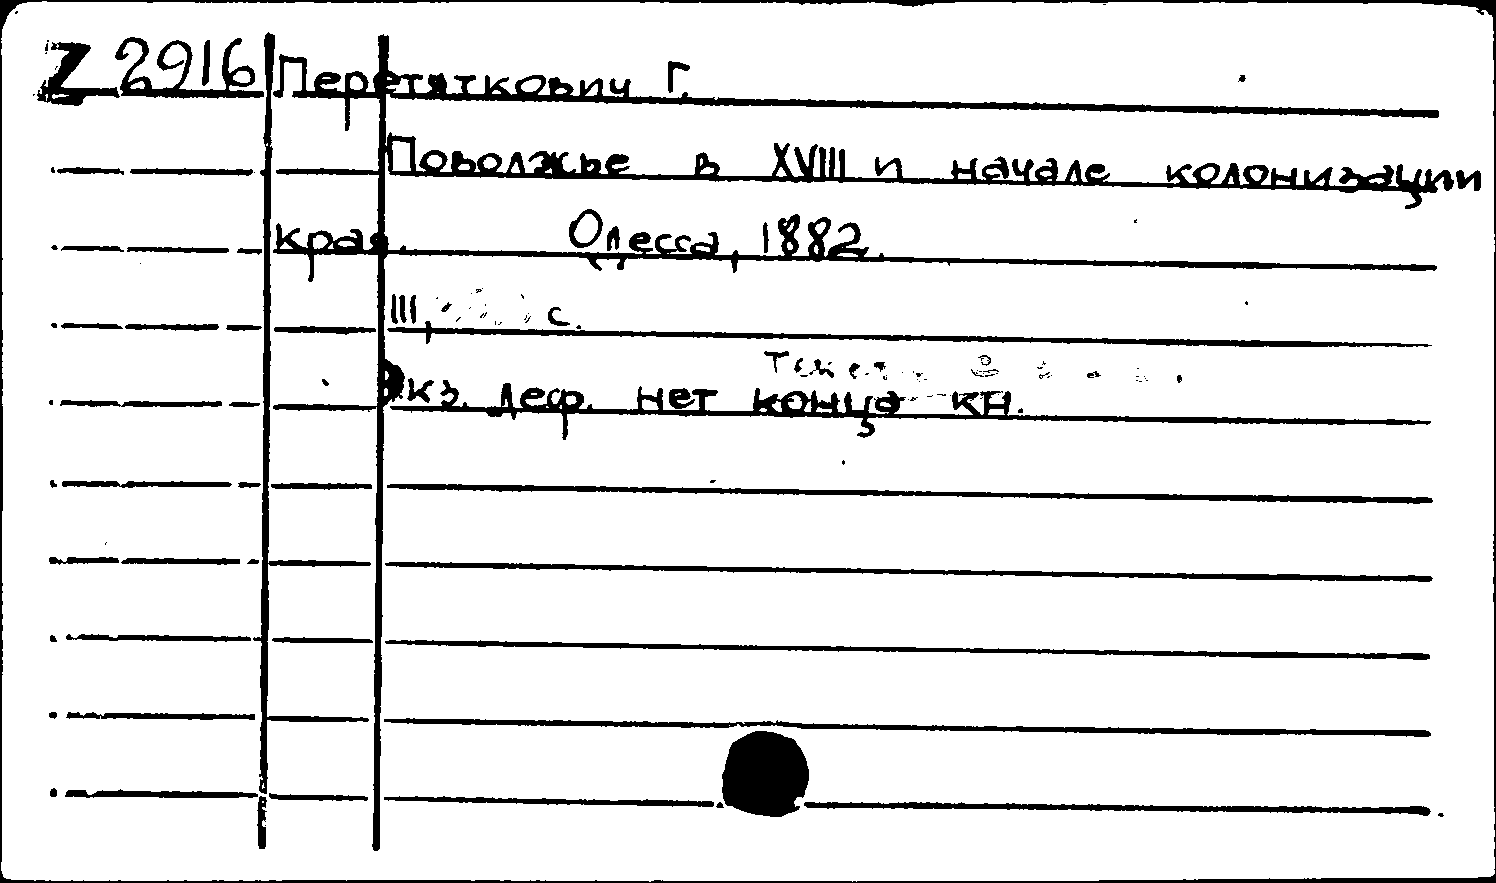 Z 2916 Перетяткович Г.
Поволжье в XVIII и начале колонизации
края. Одесса, 1882.
III, с.
Экз. деф. нет конца кн.